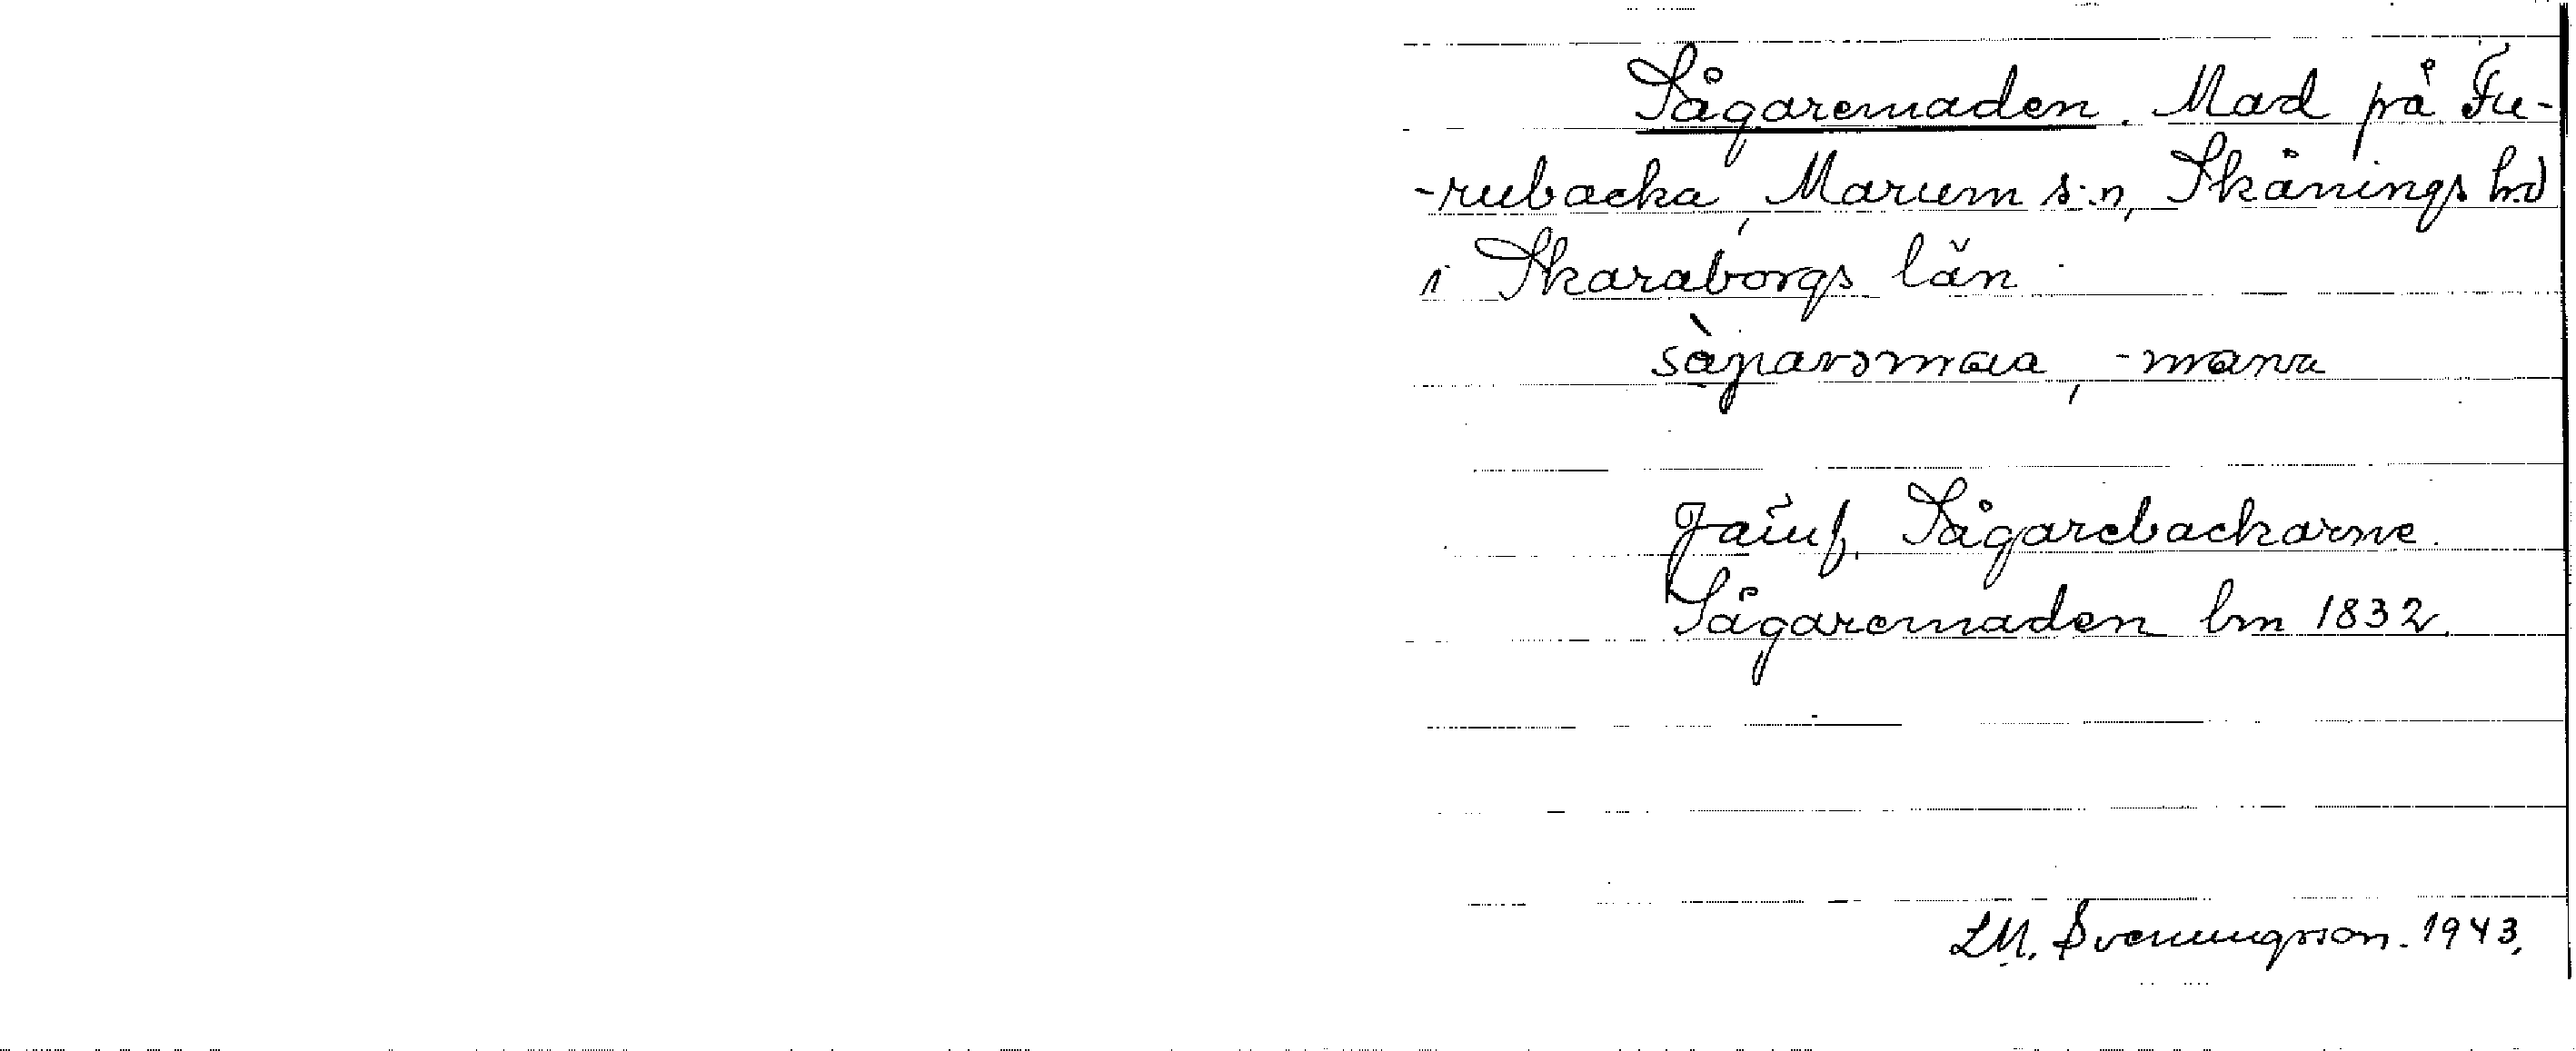 Sågaremaden. Mad på Fu-
-rubacka, Marum s:n, Skånings hd
i Skaraborgs län.
Jämf. Sågarebackarne.
Sågaremaden lm 1832.
LM. Svenungsson. 1943.